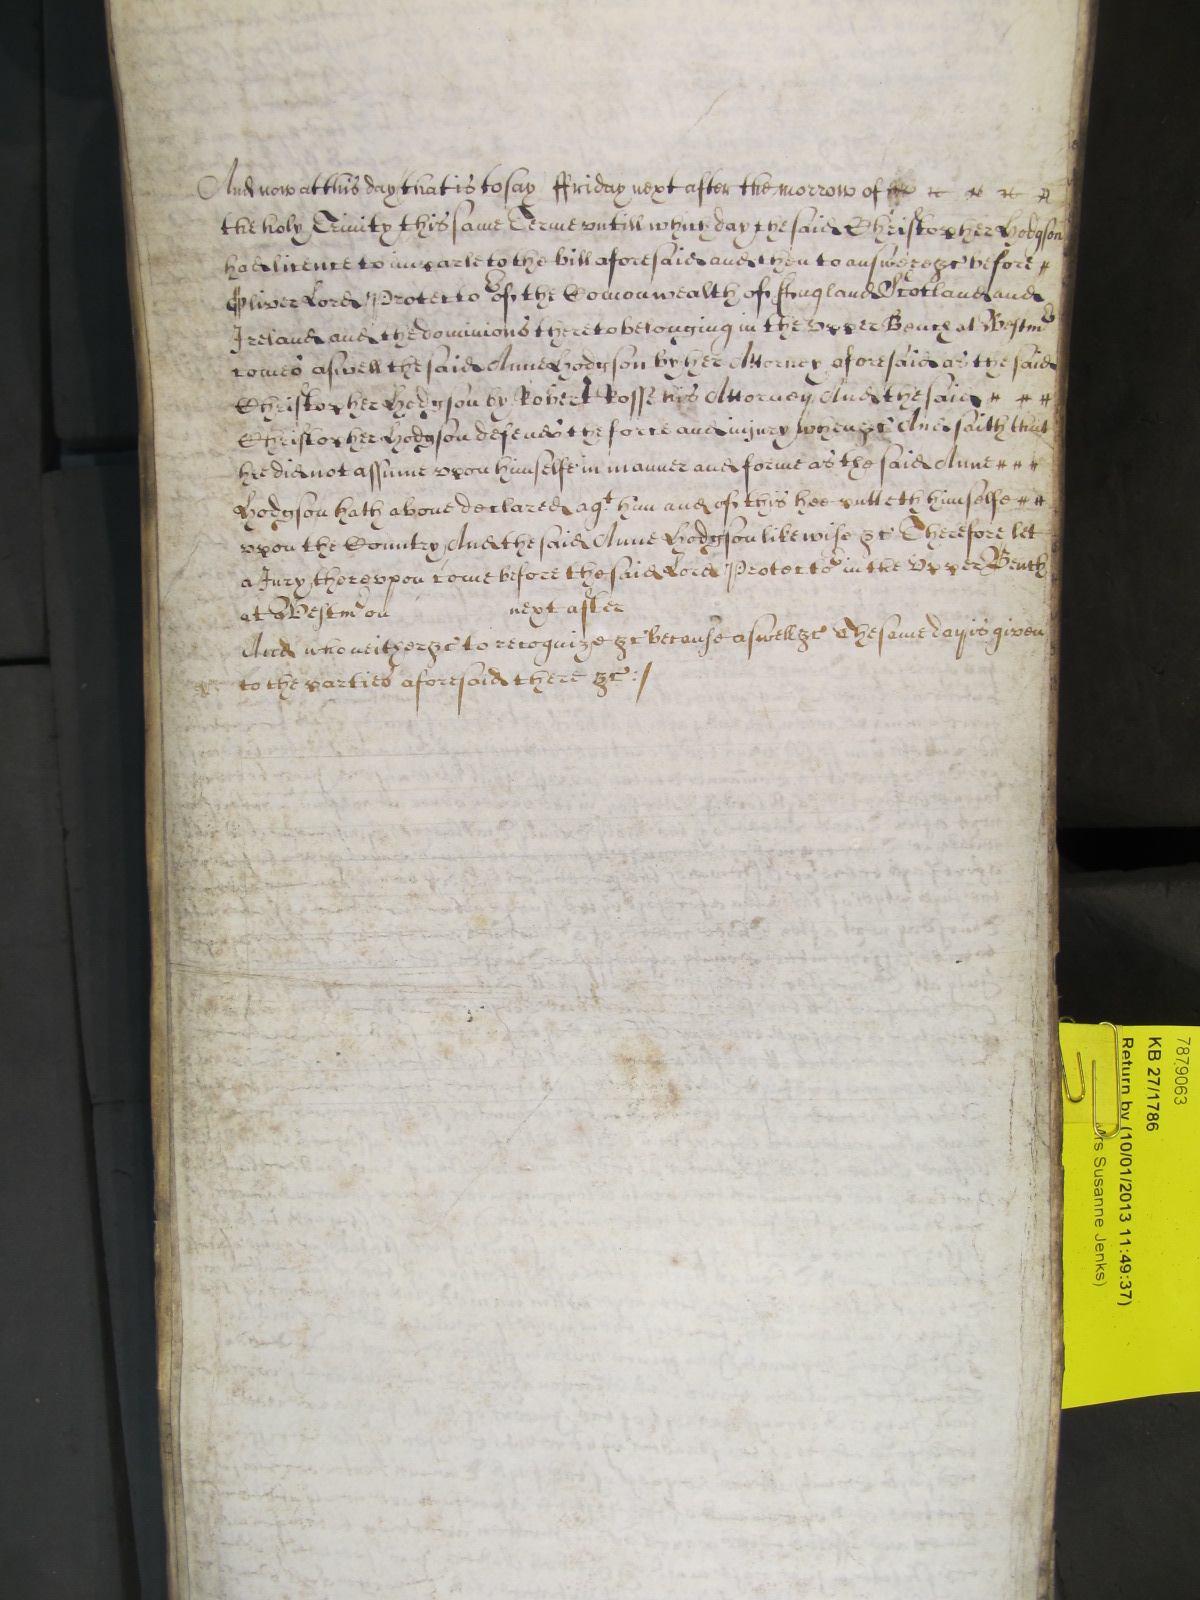 And now at this day that is to say ffriday next after the morrow of
the holy Trinity this same Terme vntill which day the said Christopher Hodgson
had licence to imparle to the bill aforesaid and then to answere &c before
Oliver Lord Protector of the Comonwealth of England Scotland and
Ireland and the dominions thereto belonging in the vpper Bench at Westmr
comes aswell the said Anne Hodgson by her Attorney aforesaid as the said
Christopher Hodgson by Robert Rosse his Attorney And the said
Christopher Hodgson defends the force and injury when &c And saith that
he did not assume vpon himselfe in manner and forme as the said Anne
Hodgson hath above declared agt him and of this hee putteth himselfe
vpon the Country And the said Anne Hodgson likewise &c Therefore let
a Jury therevpon come before the said Lord Protector in the Vpper Bench
at Westmr on next after
And who neither &c to recognize &c because aswell &c The same day is given
to the parties aforesaid there &c :/
7879063
KB 27/1786
Return by (10/01/2013 11:49:37)
rs Susanne Jenks)